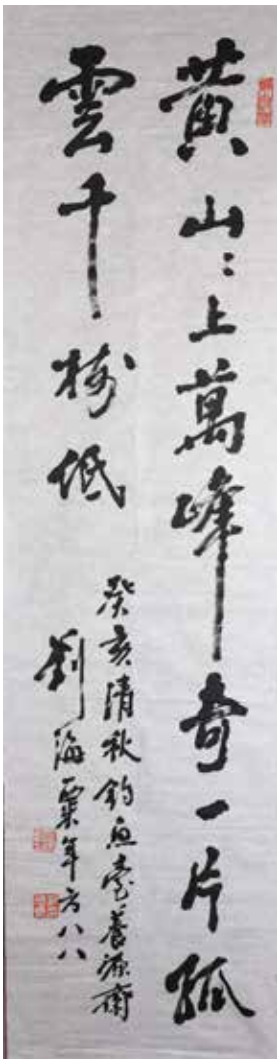 黄山々上萬峰奇一片孤
雲千樹低
癸亥清秋釣魚臺養源齋
劉海粟年方八八